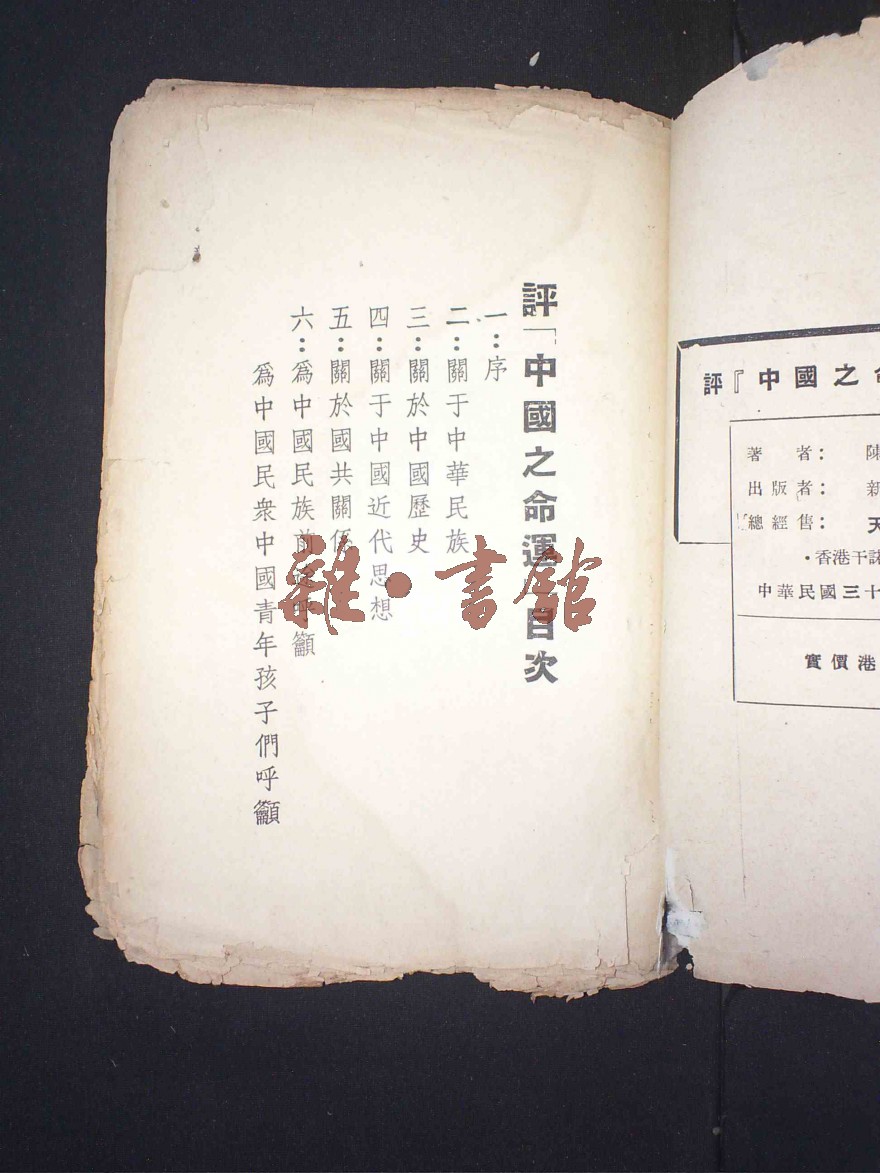 評『中國之命
著者：陳
出版者：新
總經售：天
·香港干諾
中華民國三十
實價港
評「中國之命運」目次
一：序
二：關于中華民族
三：關於中國歷史
四：關于中國近代思想
五：關於國共關係
六：爲中國民族前途呼籲
爲中國民衆中國青年孩子們呼籲
雜·書館